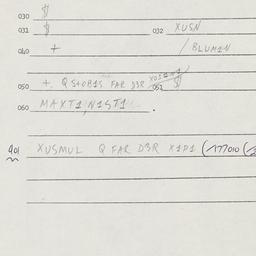 030 $
031 $ 032 XUSN
040 + / BLUM1N
050 + QSTOB1S FAR D3R 051 $
060 MAXT1, N1ST1 .
901 XUSMUL Q FAR D3R X1P1 (177010 (